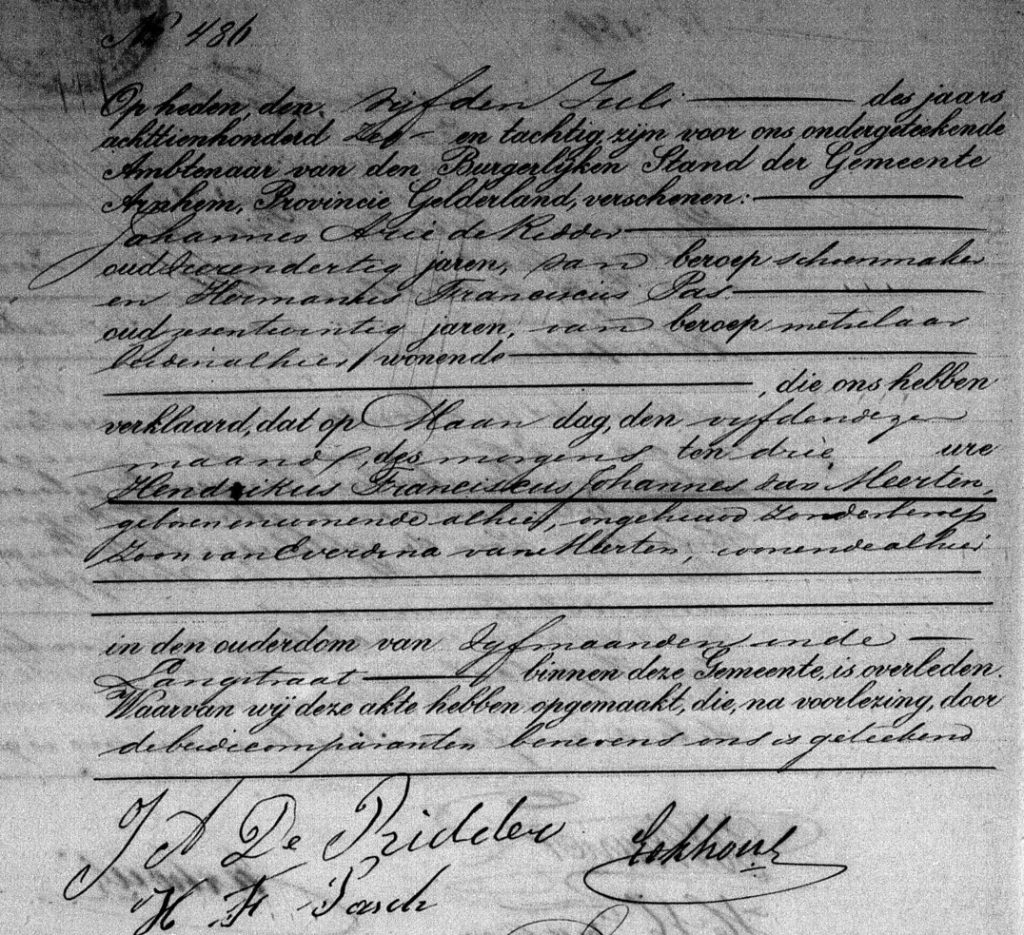 No 486
Op heden, den vijfden Juli des jaars
achttienhonderd zes en tachtig zijn voor ons ondergeteekende
Ambtenaar van den Burgerlijken Stand der Gemeente
Arnhem, Provincie Gelderland, verschenen:
Johannes Arie de Ridder
oud jaren, van beroep schoenmaker
en Hermanus Franciscus Pas
oud zesentwintig jaren, van beroep metselaar
beiden alhier wonende
, die ons hebben
verklaard, dat op Maandag, den vijfden dezer
maand, des morgens ten drie ure
Hendrikus Franciscus Johannes van Meerten,
geboren en wonende alhier, ongehuwd zonder beroep
Zoon van Everdina van Meerten, wonende alhier
in den ouderdom van vijf maanden in de
Langstraat binnen deze Gemeente, is overleden.
Waarvan wij deze akte hebben opgemaakt, die, na voorlezing, door
de beide comparanten benevens ons is geteekend
J A De Ridder
H F Pasch